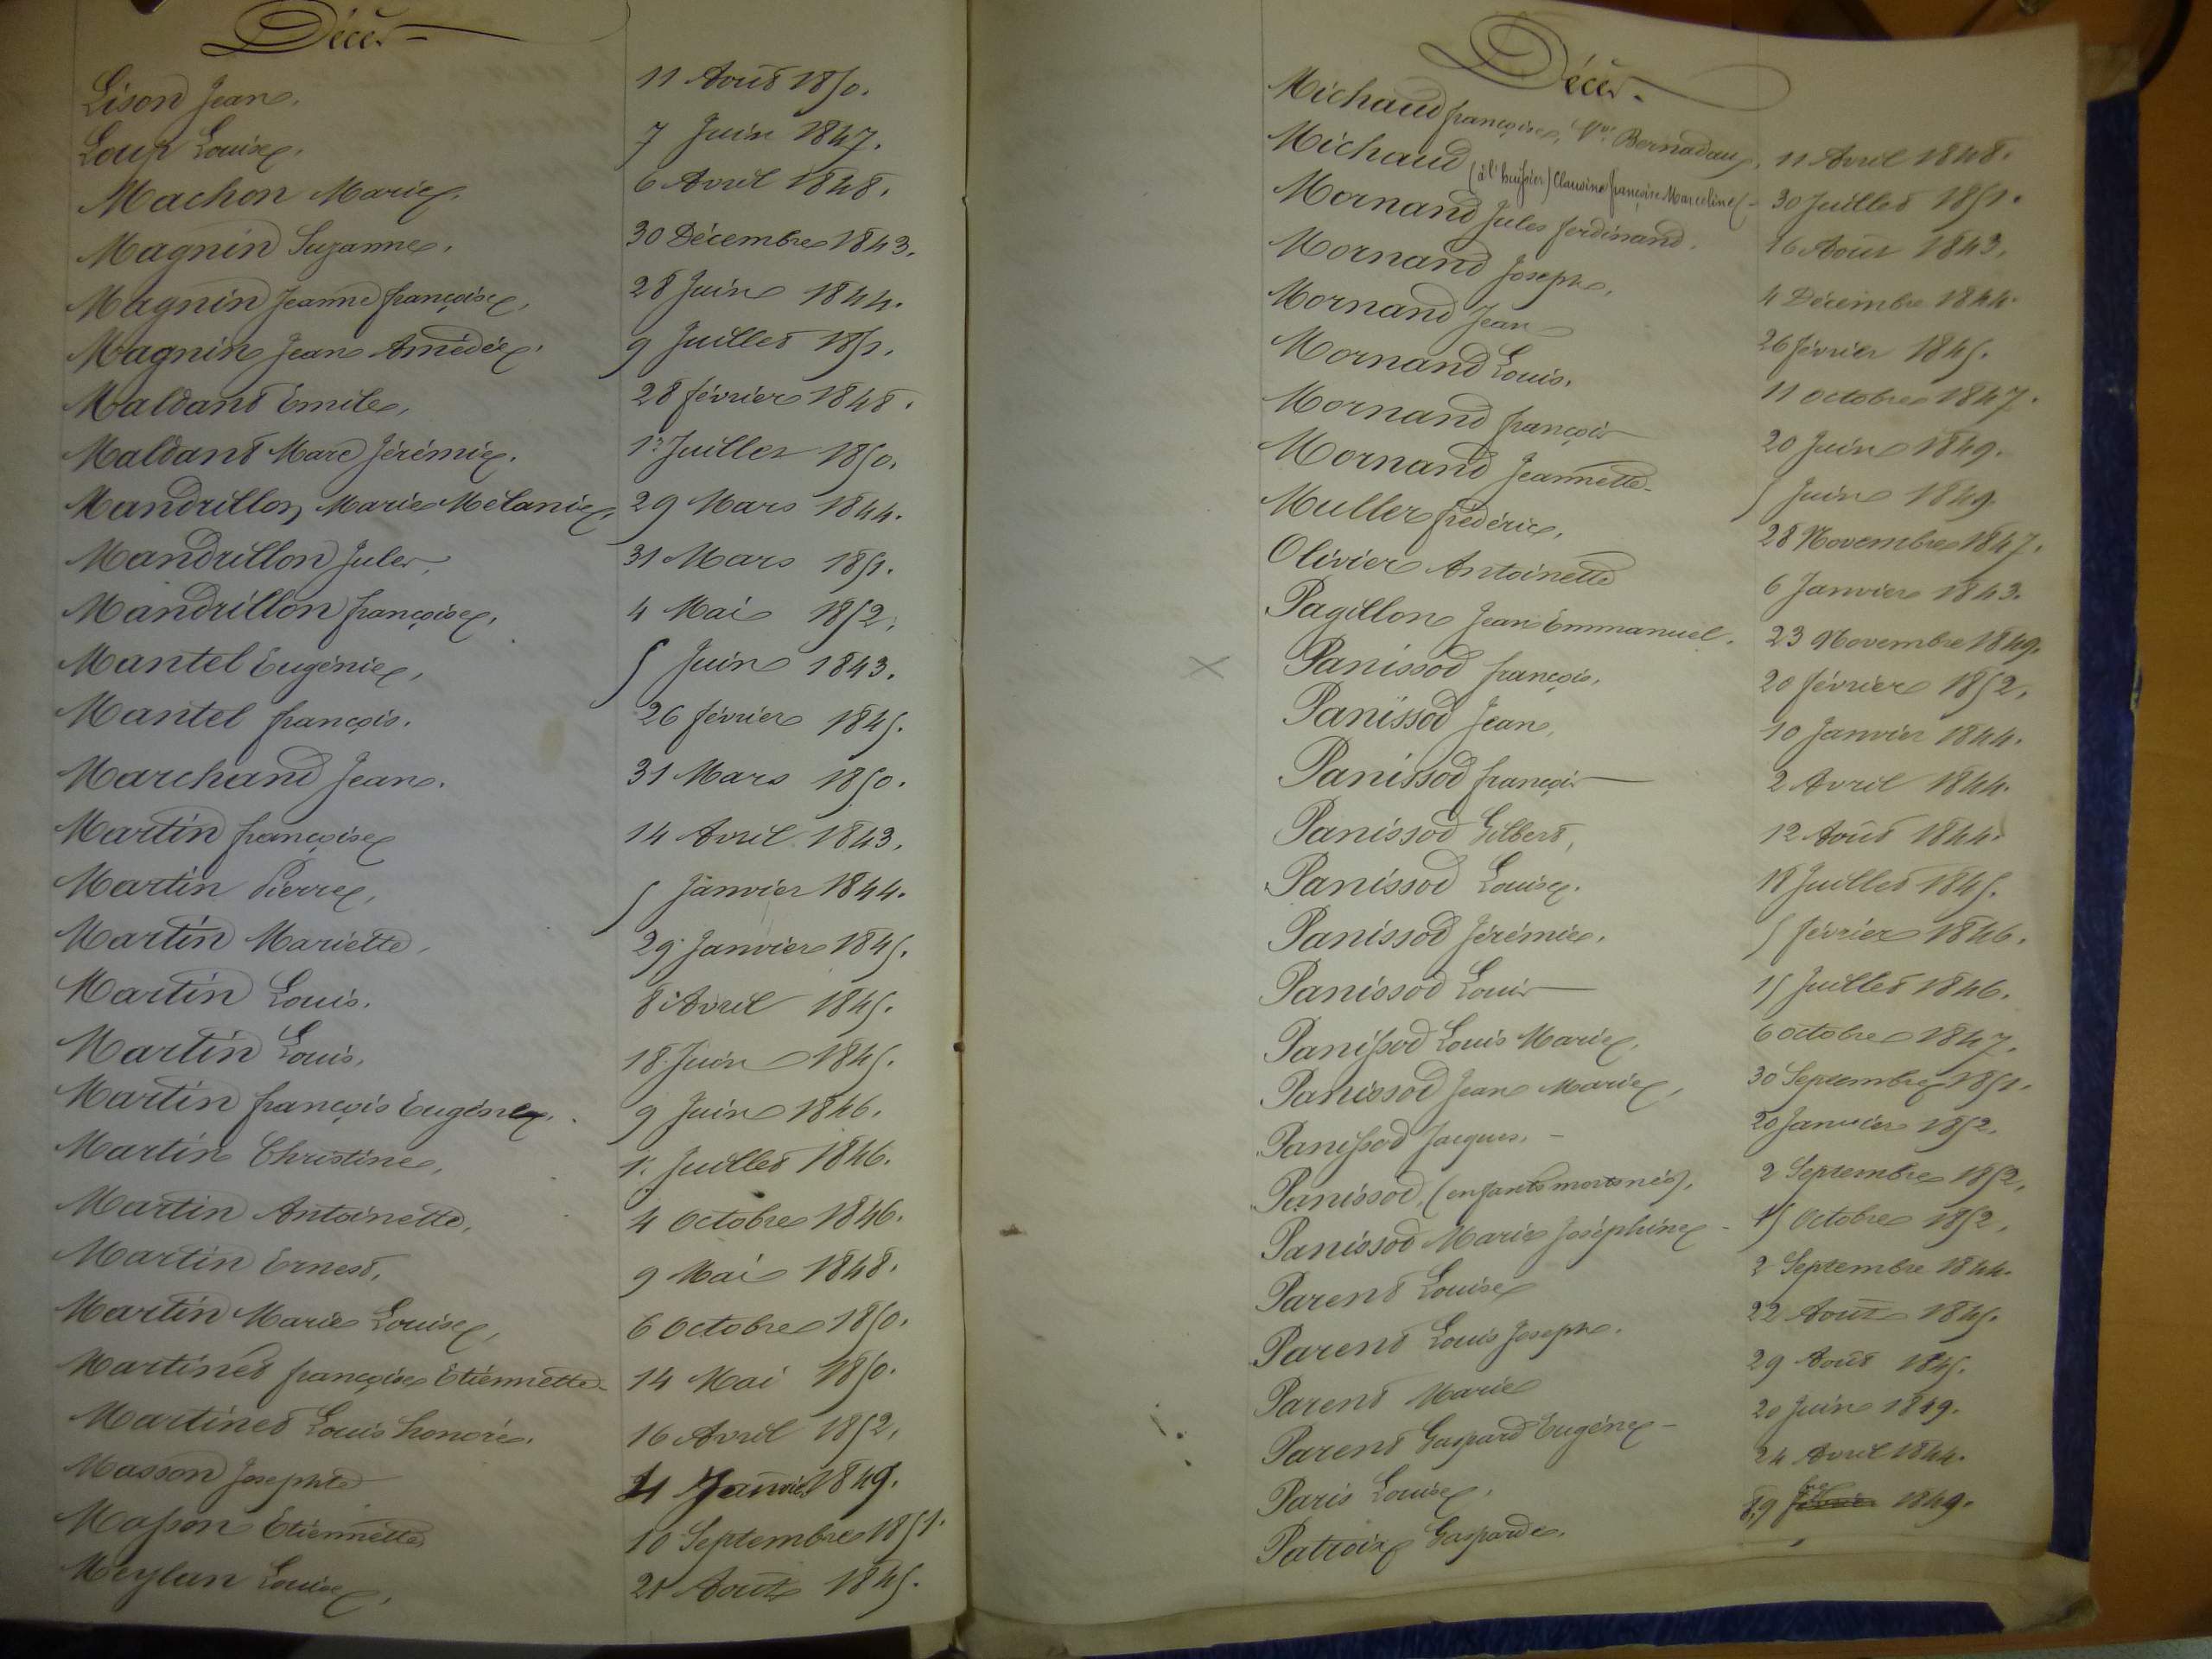 Décès
Lison Jean. 11 Août 1850.
Loup Louise. 7 Juin 1847.
Machon Marie. 6 Avril 1848.
Magnin Suzanne. 30 Décembre 1843.
Magnin Jeanne françoise. 28 Juin 1844.
Magnin Jean Amédée. 9 Juillet 1851.
Maldant Emile, 28 février 1848.
Maldant Marc Jérémie. 1er Juillet 1850.
Mandrillon Marie Mélanie, 29 Mars 1844.
Mandrillon Jules, 31 Mars 1851.
Mandrillon françoise, 4 Mai 1852.
Mantel Eugénie, 5 Juin 1843.
Mantel françois. 26 février 1845.
Marchand Jean. 31 Mars 1850.
Martin françoise 14 Avril 1843.
Martin Pierre, 5 Janvier 1844.
Martin Mariette, 29 Janvier 1845.
Martin Louis. 8 Avril 1845.
Martin Louis, 18 Juin 1845.
Martin françois Eugène. 9 Juin 1846.
Martin Christine, 1er Juillet 1846.
Martin Antoinette, 4 Octobre 1846.
Martin Ernest, 9 Mai 1848.
Martin Marie Louise, 6 Octobre 1850.
Martinet françoise Etiennette 14 Mai 1850.
Martinet Louis honoré. 16 Avril 1852,
Masson Josephte Janvier 1849.
Masson Etiennette 10 Septembre 1851.
Meylan Louise, 21 Août 1845.
Décès
Michaud françoise, Ve Bernadaux, 11 Avril 1848.
Michaud (à l'huissier) Clausine françoise Marceline 30 Juillet 1851.
Mornand Jules ferdinand. 16 Août 1843.
Mornand Joseph, 4 Décembre 1844.
Mornand Jean 26 février 1845.
Mornand Louis. 11 Octobre 1847.
Mornand françois 20 Juin 1849.
Mornand Jeannette 5 Juin 1849.
Muller frédéric, 28 Novembre 1847.
Olivier Antoinette 6 Janvier 1843.
Pagillon Jean Emmanuel. 23 Novembre 1849.
Panissod françois, 20 février 1852.
Panissod Jean, 10 Janvier 1844.
Panissod françois 2 Avril 1844.
Panissod Gilbert, 12 Août 1844.
Panissod Louise. 18 Juillet 1845.
Panissod Jérémie. 5 février 1846.
Panissod Louis 15 Juillet 1846.
Panissod Louis Marie, 6 Octobre 1847.
Panissod Jean Marie, 30 Septembre 1851.
Panissod Jacques. 20 Janvier 1852.
Panissod (enfants morts nés), 2 Septembre 1852,
Panissod Marie Joséphine 15 Octobre 1852,
Parent Louise 2 Septembre 1844.
Parent Louis Joseph. 22 Août 1845.
Parent Marie 29 Août 1845.
Parent Gaspard Eugène 20 Juin 1849.
Paris Louise, 24 Avril 1844.
Patroix Gasparde. 1849.